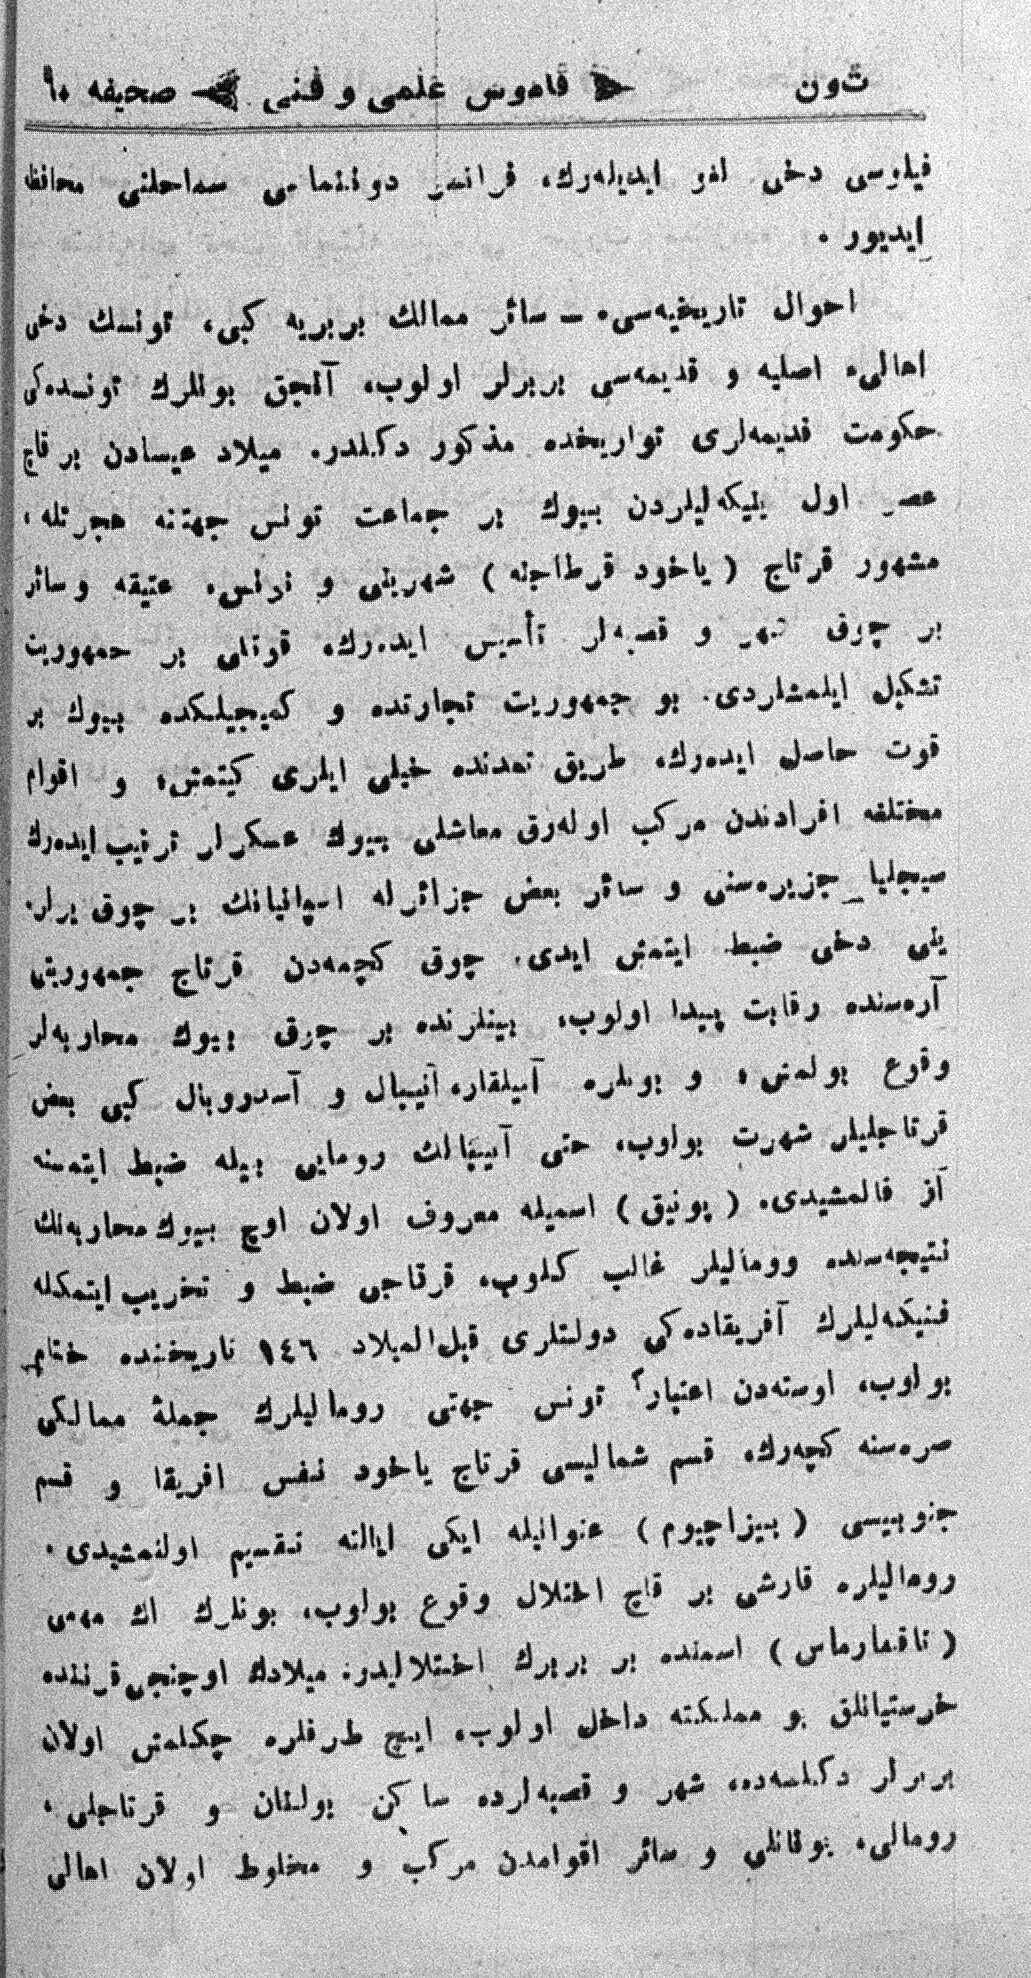 تون قاموس علمی و فنی صحیفه ٩٠
فیلوسی دخی لغو ایدیله‌رك، فرانسز دوننماسی سواحلنی محافظه
ایدیور .
احوال تاریخیه‌سی. ــ سائر ممالك بربریه كبی، تونسك دخی
اهالیء اصلیه و قدیمه‌سی بربرلر اولوب، آنجق بونلرك تونسده‌كی
حكومت قدیمه‌لری تواریخده مذكور دكلدر. میلاد عیسادن بر قاچ
عصر اول فنیكه‌لیلردن بیوك بر جماعت تونس جهتنه هجرتله ،
مشهور قرتاج ( یاخود قرطاجنه ) شهرینی و تونس، عتیقه و سائر
بر چوق شهر و قصبه‌لر تأسیس ایده‌رك، قوتلی بر جمهوریت
تشكیل ایلمشلردی. بو جمهوریت تجارتده و كمیجیلكده بیوك بر
قوت حاصل ایده‌رك، طریق تمدنده خیلی ایلری كیتمش، و اقوام
مختلفه افرادندن مركب اوله‌رق معاشلی بیوك عسكرلر ترتیب ایده‌رك
سیجلیا جزیره‌سنی و سائر بعض جزائرله اسپانیانك بر چوق یرلر.
ینی دخی ضبط ایتمش ایدی. چوق كچمه‌دن قرتاج جمهوریتی
آره‌سنده رقابت پیدا اولوب، بینلرنده بر چوق بیوك محاربه‌لر
وقوع بولمش ، و بونلره آمیلقار، آنیبال و آسدروبال كبی بعض
قرتاجلیلر شهرت بولوب، حتی آنیبالك رومایی بیله ضبط ایتمسنه
آز قالمشیدی. ( پونیق ) اسمیله معروف اولان اوچ بیوك محاربه‌نك
نتیجه‌سنده رومالیلر غالب كلوب، قرتاجی ضبط و تخریب ایتمكله
فنیكه‌لیلرك آفریقاده‌كی دولتلری قبل المیلاد ١٤٦ تاریخنده ختام
بولوب، اوسنه‌دن اعتبارً تونس جهتی رومالیلرك جملهٔ ممالكی
صره‌سنه كچه‌رك، قسم شمالیسی قرتاج یاخود نفس افریقا و قسم
جنوبیسی ( بیزاچیوم ) عنوانیله ایكی ایالته تقسیم اولنمشیدی .
رومالیلره قارشی بر قاچ اختلال وقوع بولوب، بونلرك اك مهمی
( تاقفارماس ) اسمنده بر بربرك اختلالیدر. میلادك اوچنجی قرننده
خرستیانلق بو مملكته داخل اولوب، ایچ طرفلره چكلمش اولان
بربرلر دكلسه‌ده، شهر و قصبه‌لرده ساكن بولنان و قرتاجلی ،
رومالی، یونانلی و سائر اقوامدن مركب و مخلوط اولان اهالی